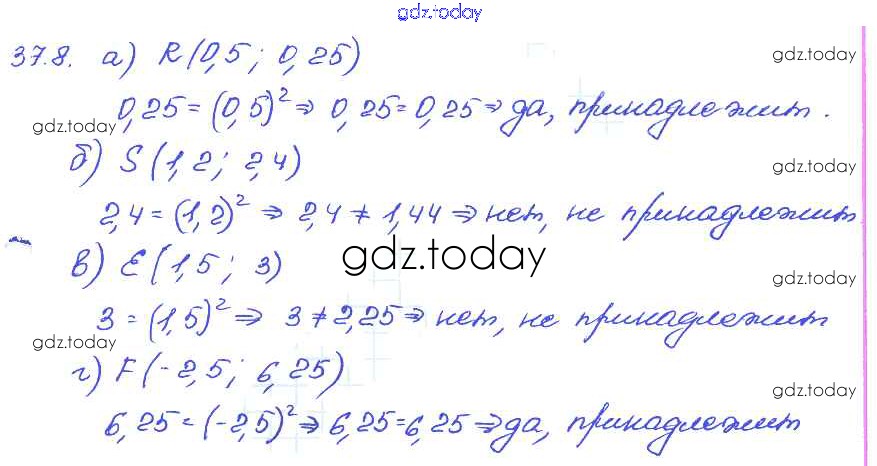 gdz.today
37.8. а) R(0,5; 0,25)
gdz.today
0,25 = (0,5)² ⇒ 0,25 = 0,25 ⇒ да, принадлежит.
gdz.today
б) S(1,2; 2,4)
gdz.today
2,4 = (1,2)² ⇒ 2,4 ≠ 1,44 ⇒ нет, не принадлежит
gdz.today
в) E(1,5; 3)
gdz.today
3 = (1,5)² ⇒ 3 ≠ 2,25 ⇒ нет, не принадлежит
gdz.today
г) F(-2,5; 6,25)
gdz.today
6,25 = (-2,5)² ⇒ 6,25 = 6,25 ⇒ да, принадлежит